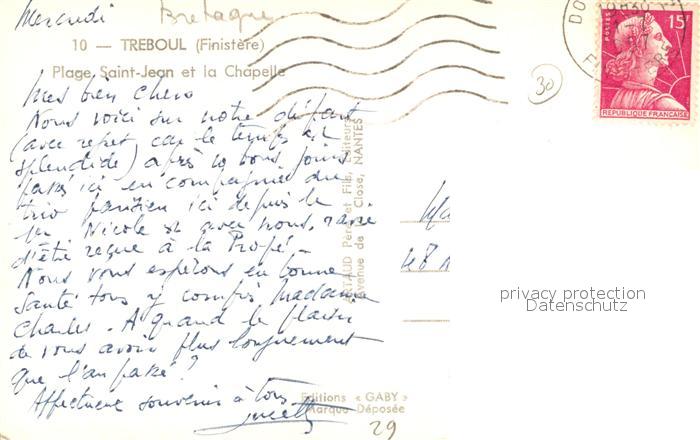 Mercredi Bretagne
10 — TREBOUL (Finistère)
Plage Saint-Jean et la Chapelle
Mes bien chers
Nous voici sur notre départ
(avec regret car le temps est
splendide) après 10 bons jours
passés ici en compagnie du
trio parisien ici depuis le
1er Nicole est avec nous, ravie
d'être reçue à la Propé.
Nous vous espérons en bonne
santé tous y compris Madame
Charles. A quand le plaisir
de vous avoir plus longuement
que l'an passé ?
Affectueux souvenir à tous
Editions « GABY »
Marque Déposée
ARTAUD Père et Fils, Editeurs
Avenue de la Close, NANTES
30
29
POSTES
15F
REPUBLIQUE FRANÇAISE
privacy protection
Datenschutz